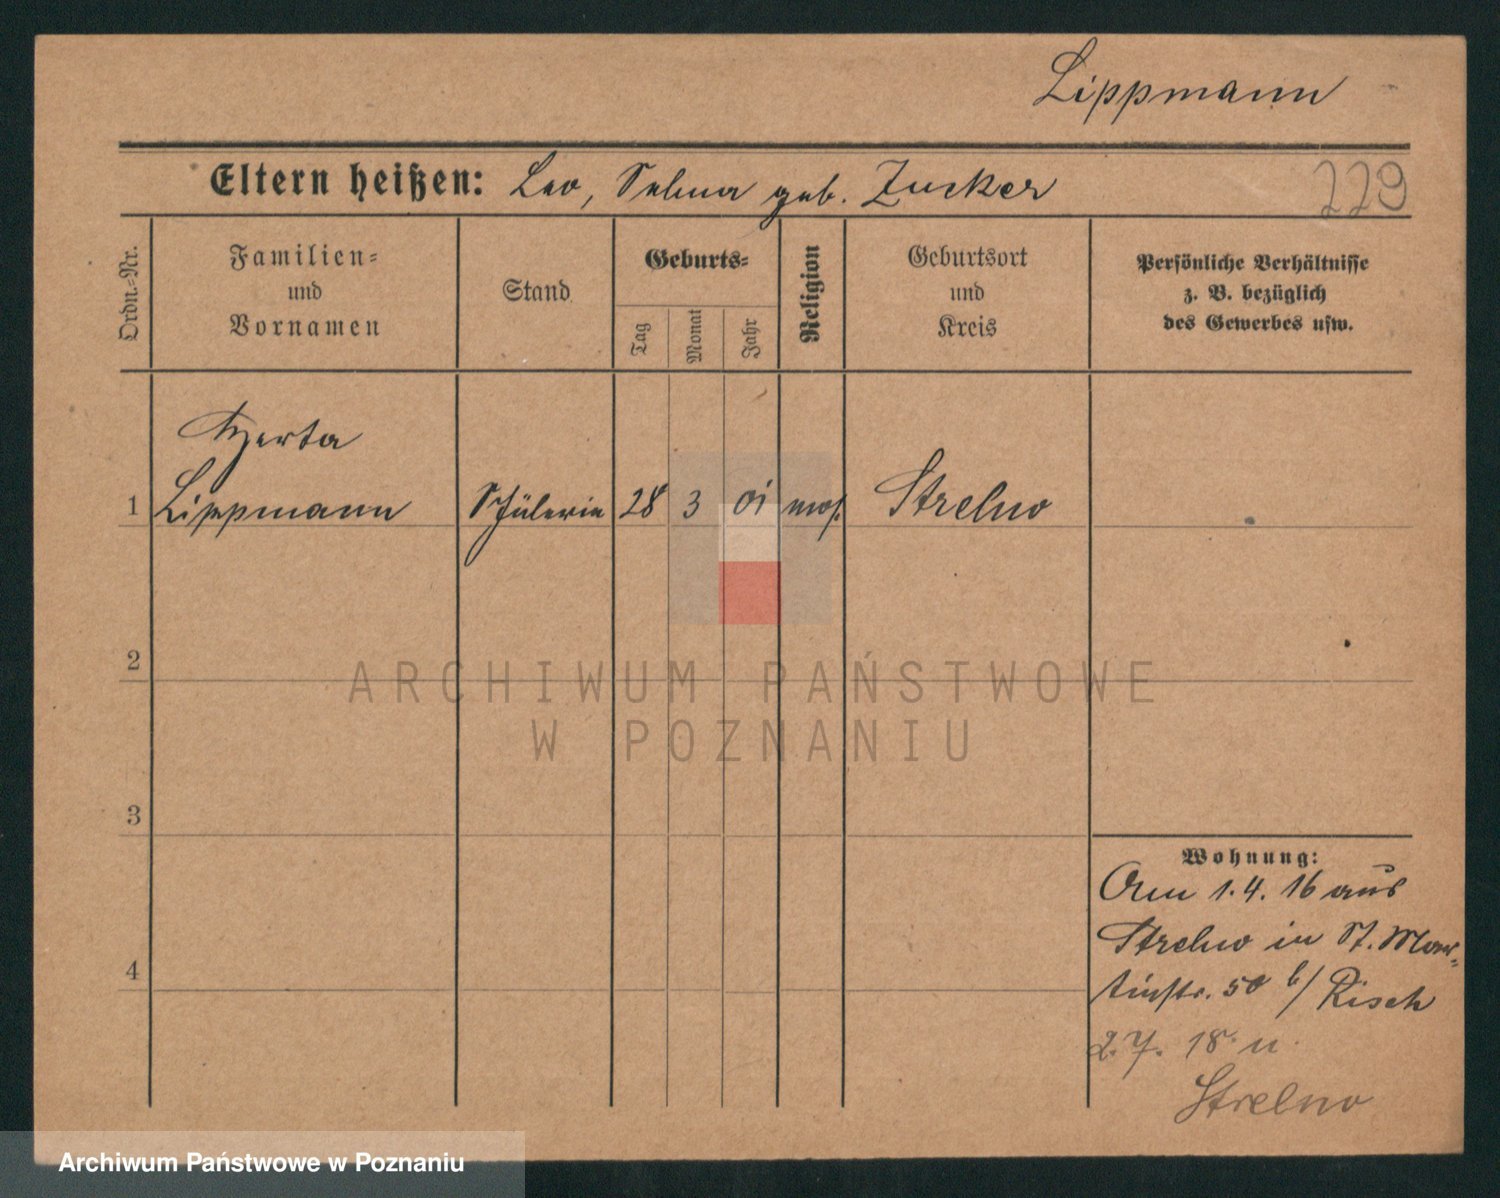 Lippmann
Eltern heißen: Leo, Selma geb. Zucker
229
Ordn.-Nr.
Familien-
und
Vornamen
Stand
Geburts-
Tag
Monat
Jahr
Religion
Geburtsort
und
Kreis
Persönliche Verhältnisse
z. B. bezüglich
des Gewerbes usw.
Herta
1 Lippmann Schülerin 28 3 01 mos. Strelno
2
ARCHIWUM PAŃSTWOWE
W POZNANIU
3
Wohnung:
Am 1.4.16 aus
Strelno in St. Mar-
4
tinstr. 50 b/ Risch
2.7. 18 n
Strelno
Archiwum Państwowe w Poznaniu